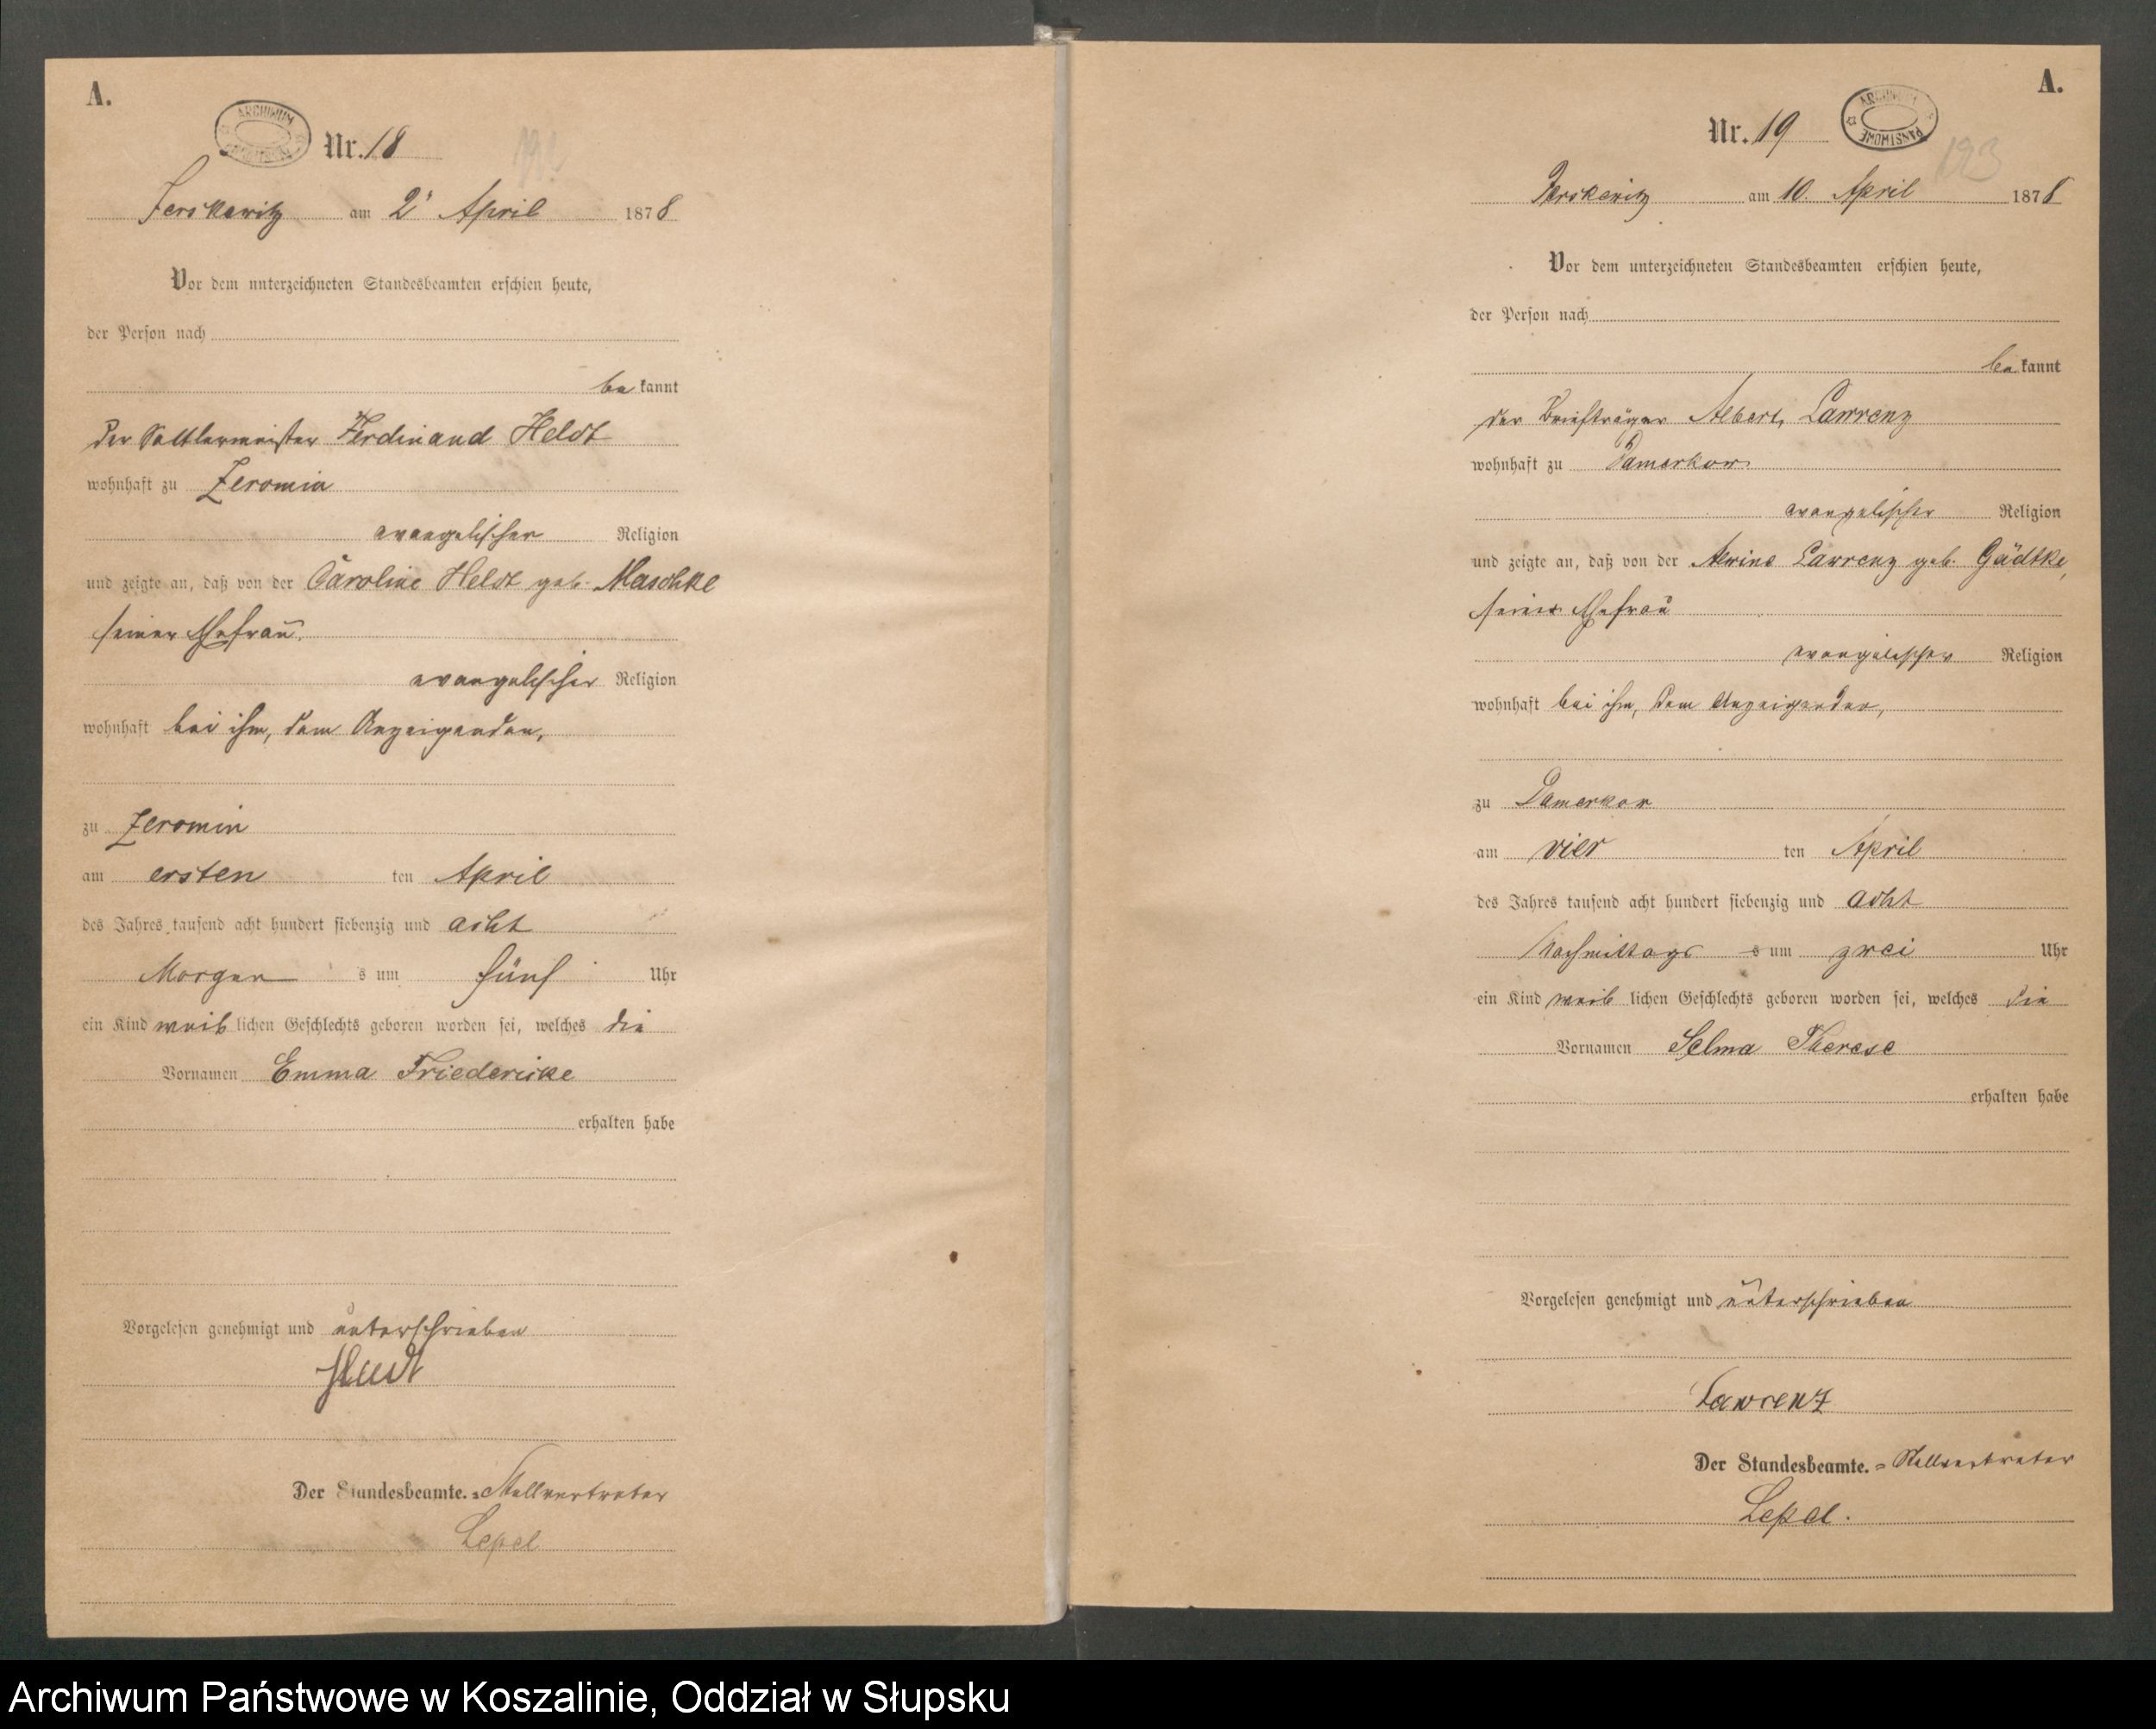 A.
ARCHIWUM
Nr. 18
Jerskewitz am 2' April 1878
Vor dem unterzeichneten Standesbeamten erschien heute,
der Person nach
be kannt
der Sattlermeister Ferdinand Heldt
wohnhaft zu Zeromin
evangelischer Religion
und zeigte an, daß von der Caroline Heldt geb. Maschke
seiner Ehefrau.
evangelischer Religion
wohnhaft bei ihm, dem Anzeigenden,
zu Zeromin
am ersten ten April
des Jahres tausend acht hundert siebenzig und acht
Morgen s um fünf Uhr
ein Kind weib lichen Geschlechts geboren worden sei, welches die
Vornamen Emma Friedericke
erhalten habe
Vorgelesen genehmigt und unterschrieben
Heldt
Der Standesbeamte. = Stellvertreter
Lepel
A.
Nr. 19
ARCHIWUM PAŃSTWOWE
123
Jerskewitz am 10. April 1878
Vor dem unterzeichneten Standesbeamten erschien heute,
der Person nach
be kannt
der Briefträger Albert Lawrenz
wohnhaft zu Damerkow
evangelischer Religion
und zeigte an, daß von der Lawrenz geb. Gädtke,
seiner Ehefrau
evangelischer Religion
wohnhaft bei ihm, dem Anzeigenden,
zu Damerkow
am vier ten April
des Jahres tausend acht hundert siebenzig und acht
Nachmittags s um zwei Uhr
ein Kind weib lichen Geschlechts geboren worden sei, welches die
Vornamen Selma Therese
erhalten habe
Vorgelesen genehmigt und unterschrieben
Lawrenz
Der Standesbeamte. = Stellvertreter
Lepel.
Archiwum Państwowe w Koszalinie, Oddział w Słupsku